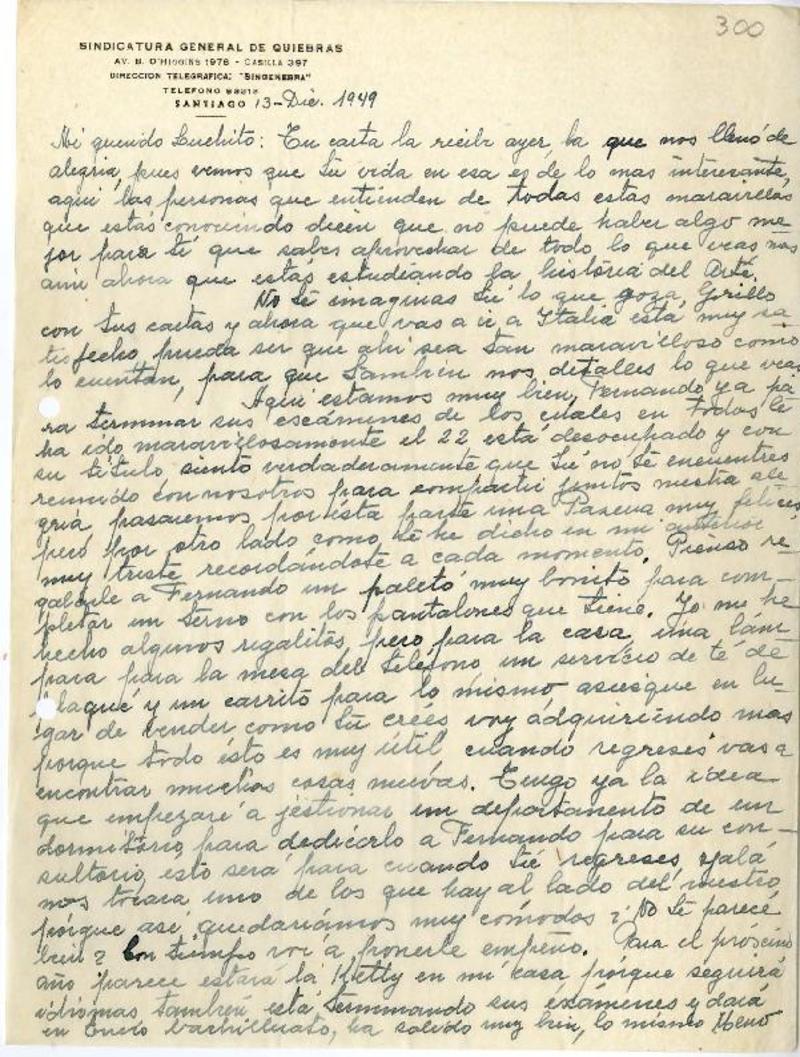 300
SINDICATURA GENERAL DE QUIEBRAS
AV. B. O'HIGGINS 1976 - CASILLA 397
DIRECCION TELEGRAFICA: "SINGENEBRA"
TELEFONO
SANTIAGO 13-Dic. 1949
Mi querido Luchito: Tu carta la recibí ayer, la que nos llenó de
alegria, pues vemos que tu vida en esa es de lo mas interesante,
aqui las personas que entienden de todas estas maravillas
que estás conociendo dicen que no puede haber algo me-
jor para tí que sabes aprovechar de todo lo que veas mas
aun ahora que estás estudiando la história del Arte.
No te imaginas tu lo que goza, Grillo
con tus cartas y ahora que vas a ir a Italia está muy sa
tisfecho pueda ser que ahi sea tan maravilloso como
lo cuentan, para que tambien nos detalles lo que veas
Aqui estamos muy bien, Fernando ya pa
ra terminar sus escámenes de los cuales en todos le
ha ido maravillosamente el 22 está desocupado y con
su titulo siento verdaderamente que tu no te encuentres
reunido con nosotros para compartir juntos nuestra ale
gria pasaremos por esta parte una Pascua muy felices
pero por otro lado como te he dicho en mi anterior
muy triste recordándote a cada momento. Pienso re-
galarle a Fernando un paletó muy bonito para com-
pletar un terno con los pantalones que tiene. Yo me he
hecho algunos regalitos, pero para la casa, una lám-
para para la mesa del teléfono un servicio de té de
plaqué y un carrito para lo mismo asiesque en lu-
gar de vender como tu crees voy adquiriendo mas
porque todo ésto es muy útil cuando regreses vas a
encontrar muchas cosas nuevas. Tengo ya la idea
que empezaré a jestionar un departamento de un
dormitório, para dedicarlo a Fernando para su con-
sultorio, esto será para cuando tu regreses, ojalá
nos tocara uno de los que hay al lado del nuestro
porque asi quedariamos muy cómodos ¿No te parece
bien? Con tiempo voi a ponerle empeño. Para el próscimo
año parece estará la Ketty en mi casa porque seguirá
idiomas tambien está terminando sus éxámenes y dará
en Enero bachillerato, ha salido muy bien, lo mismo